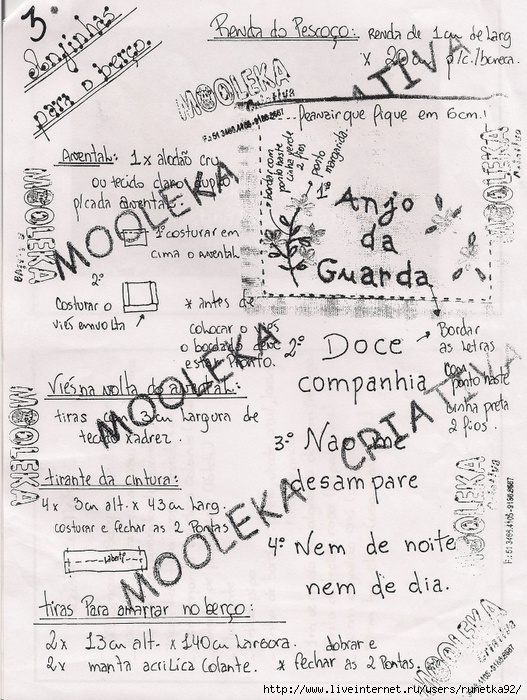 3.
Anjinhas
para o berço.
Renda do Pescoço: Renda de 1 cm de larg
x 20 cm p/c./boneca.
MOOLEKA CRIATIVA
Franzir que fique em 6cm.
Avental: 1x algodão cru
ou tecido claro duplo
p/cada avental
1º costurar em
cima o avental
2º
Costurar o
viés em volta
* antes de
colocar o viés
o bordado deve
estar pronto.
bordar com
ponto haste
linha verde
2 fios
ponto
margarida.
1º
Anjo
da
Guarda
Bordar
as letras
com
ponto haste
linha preta
2 fios.
2º Doce
companhia
3º Não me
desampare
4º Nem de noite
nem de dia.
Viés na volta do avental:
tiras com 3cm Largura de
tecido xadrez.
tirante da cintura:
4x 3cm alt. x 43cm larg.
costurar e fechar as 2 Pontas
tiras Para amarrar no berço:
2x 13cm alt. x 140cm largura. dobrar e
2x manta acrilica Colante. * fechar as 2 Pontas.
MOOLEKA
MOOLEKA
MOOLEKA
MOOLEKA
MOOLEKA
MOOLEKA
MOOLEKA
MOOLEKA
MOOLEKA
CRIATIVA
http://www.liveinternet.ru/users/runetka92/